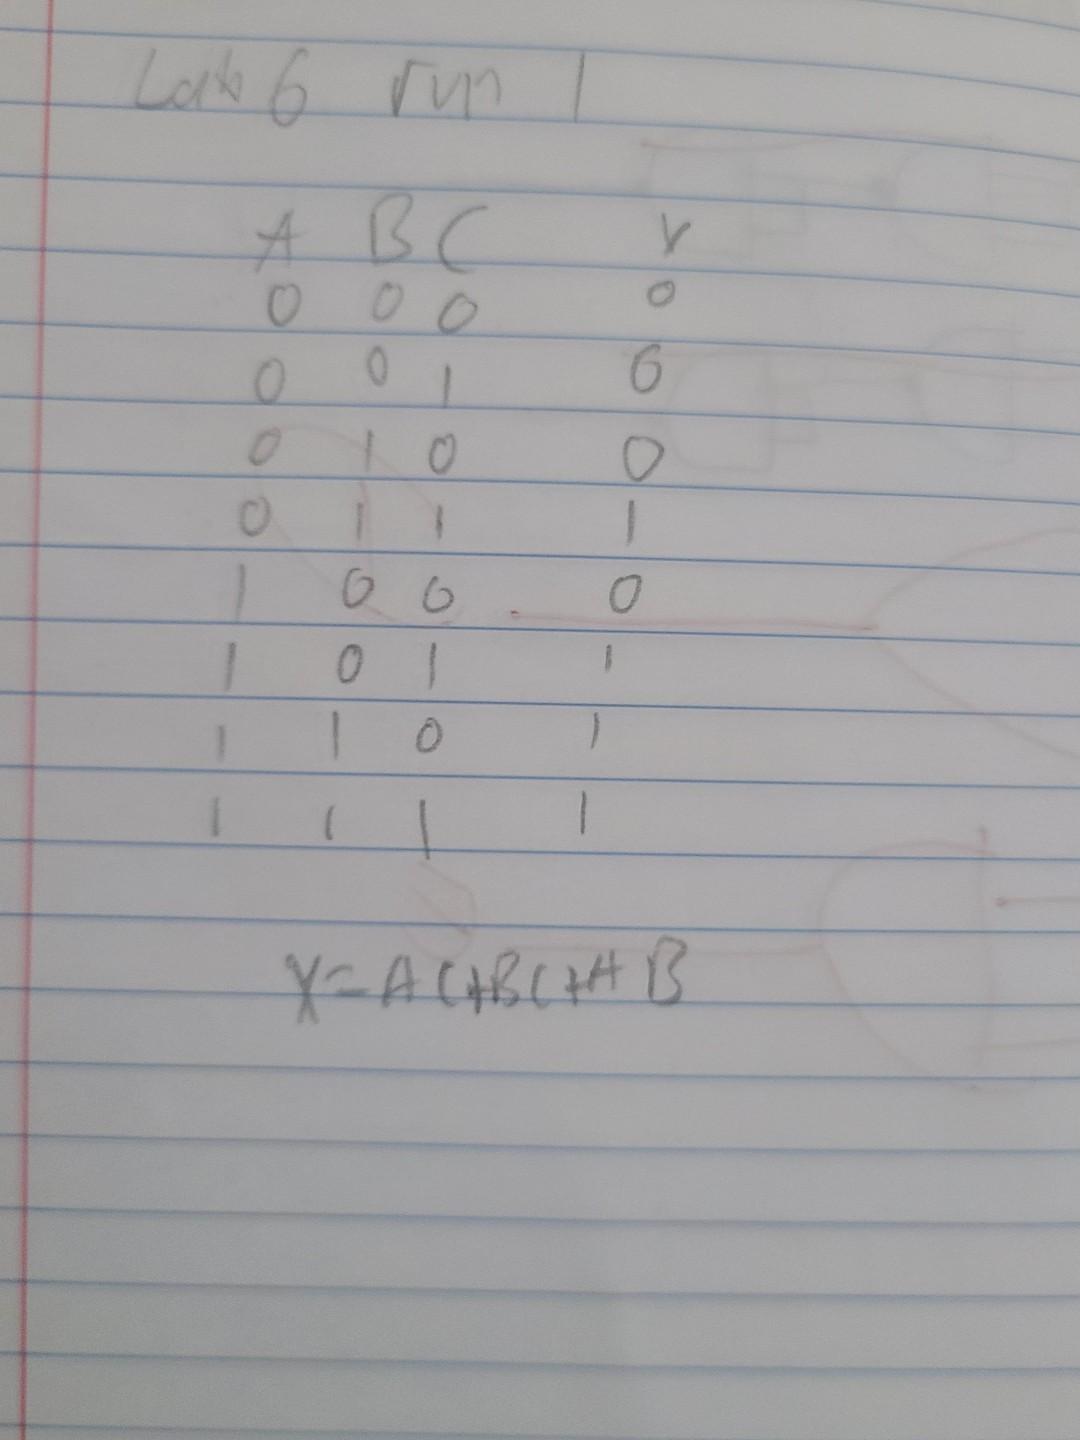 Lab 6 run 1
A B C Y
0 0 0 0
0 0 1 0
0 1 0 0
0 1 1 1
1 0 0 0
1 0 1 1
1 1 0 1
1 1 1 1
Y=AC+BC+AB